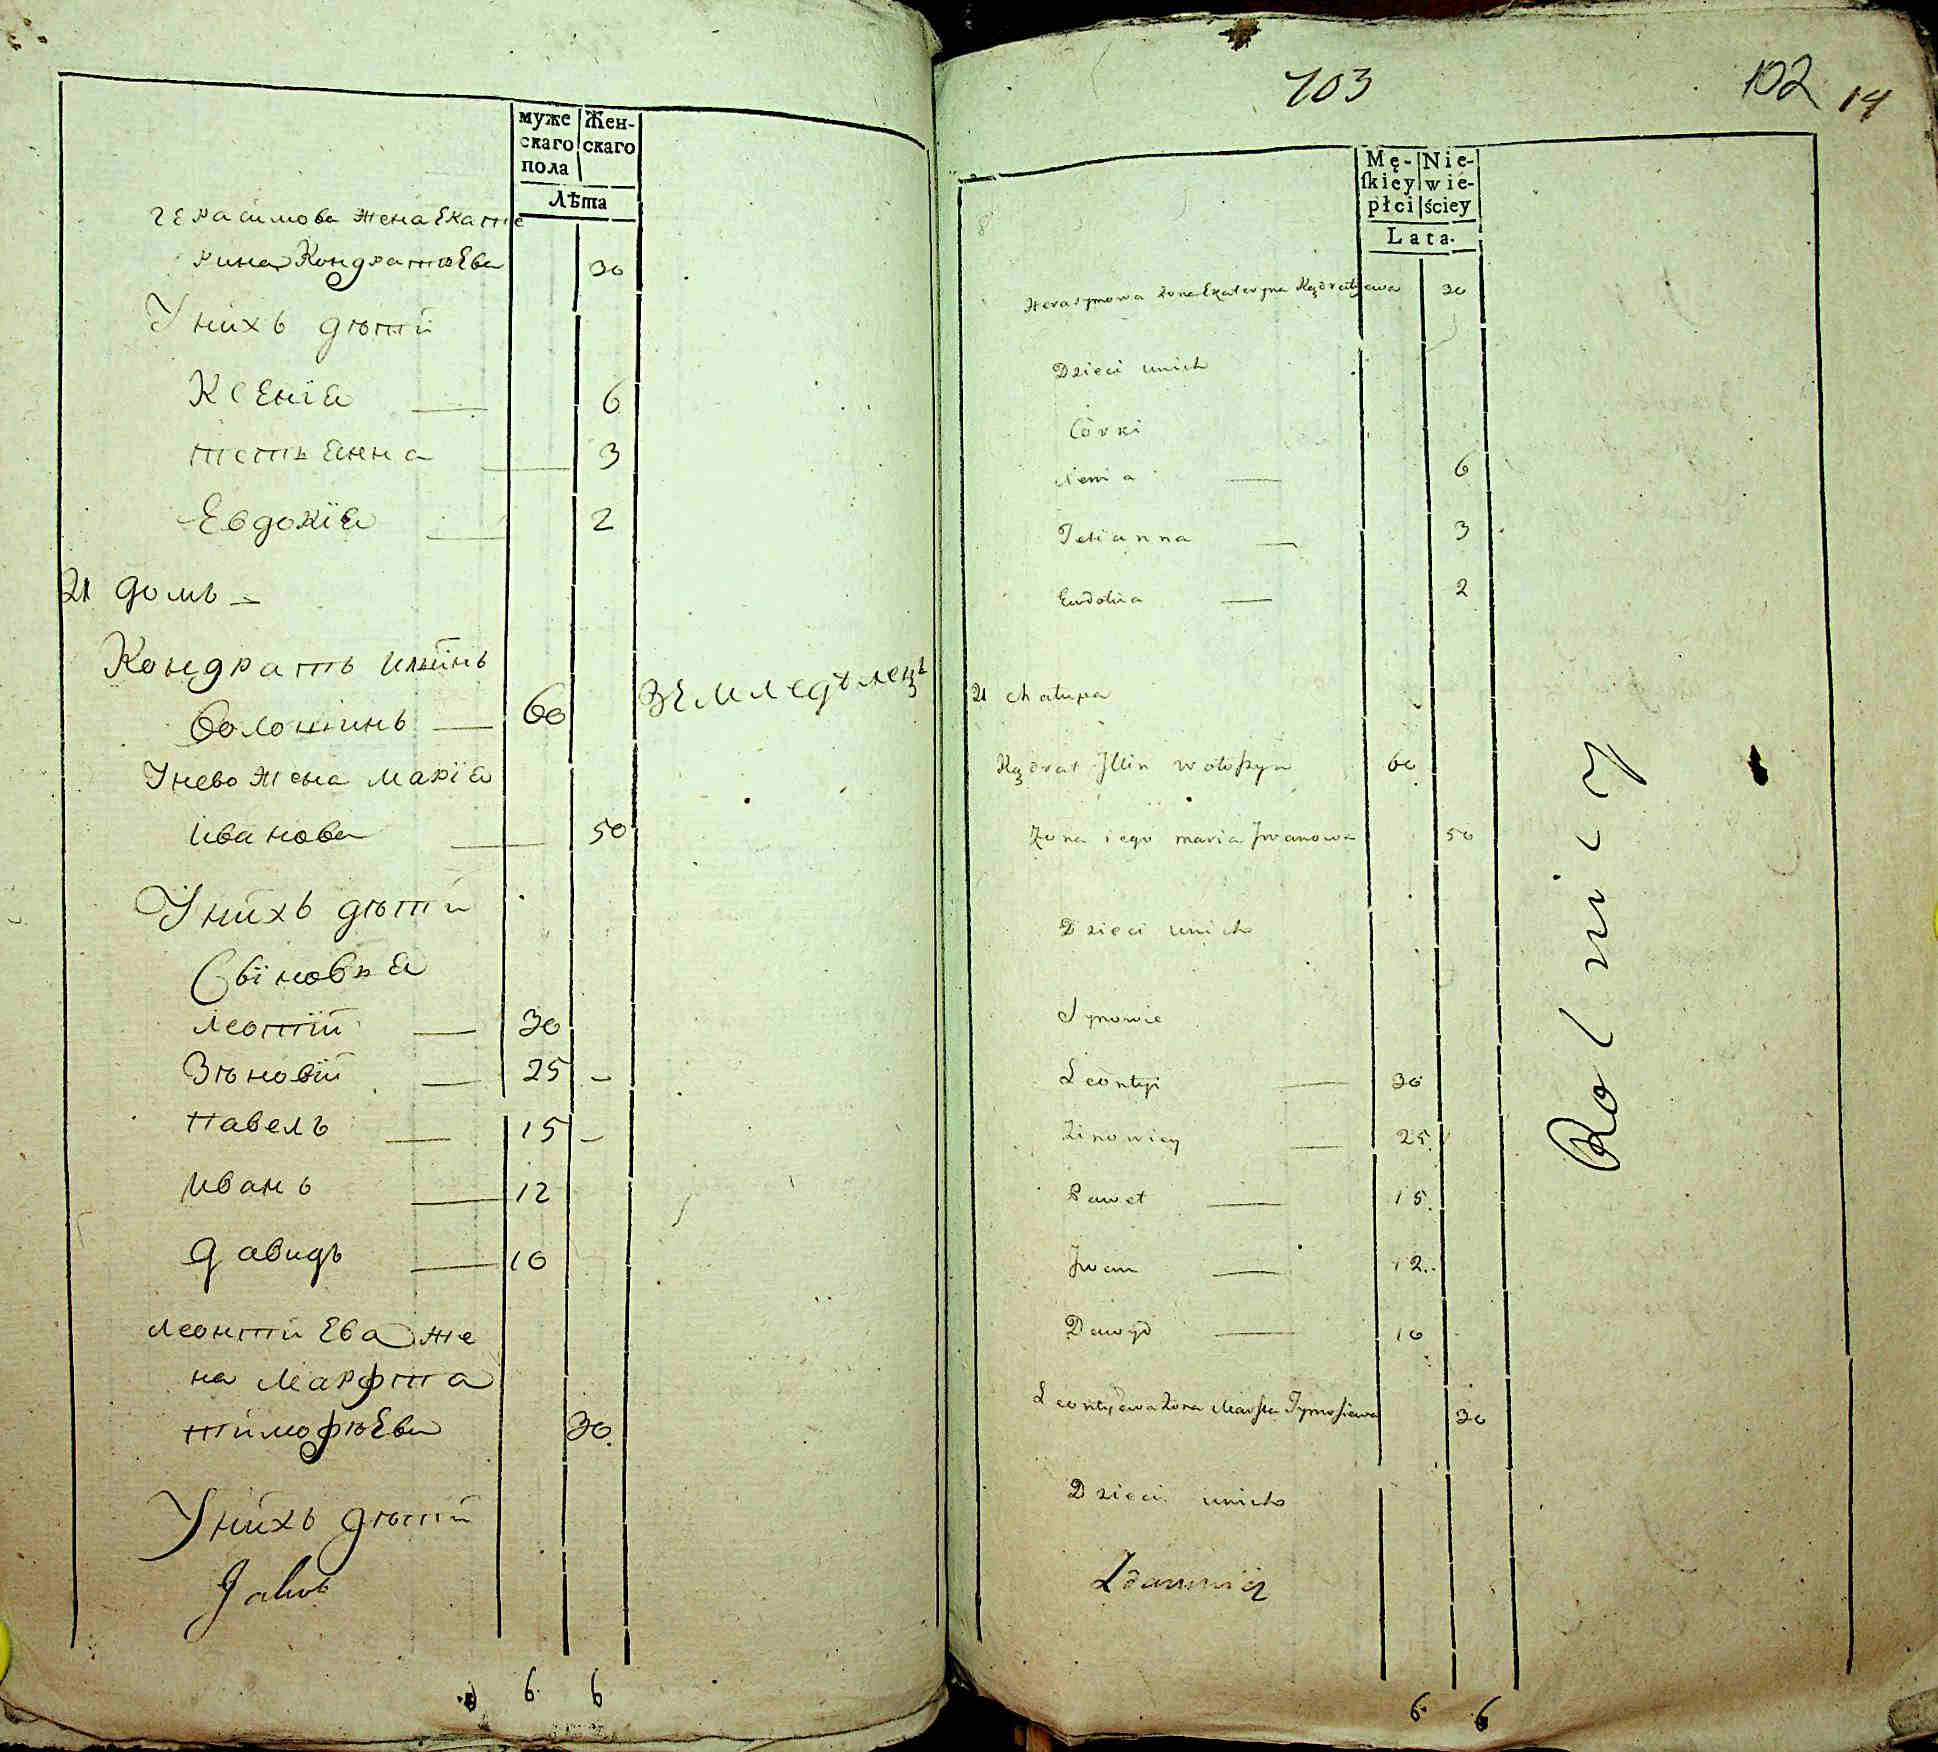 муже Жен-
скаго скаго
пола
Лѣта
герасимова жена Екате
рина Кондратѣева 30
У нихъ дѣтй
Ксенїа 6
тетьянна 3
Евдокїа 2
21 домъ
Кондратъ ильинъ
волошинъ 60 земледѣлецъ
У нево жена марїа
иванова 50
У нихъ дѣтй
Сыновья
леонтїй 30
Зѣновїй 25
павелъ 15
иванъ 12
давидъ 10
леонтиева же
на марфта
тимофѣева 30
У нихъ дѣтй
6 6
103
102 14
Mę- Nie-
ſkiey wie-
płci ściey
Lata.
Herasymowa żona Ekateryna Kądratyewa 30
Dzieci unich
Córki
6
Tetianna 3
Ewdokia 2
21 chałupa
Kądrat Jllin wołoszyn 60
Żona iego maria Jwanowa 50
Dzieci unich
Synowie
Leontyi 30
Zinowiey 25
Paweł 15
Jwan 12
Dawyd 10
Leontyewa żona Marfta Tymofiewa 30
Dzieci unich
Rolnicy
6 6